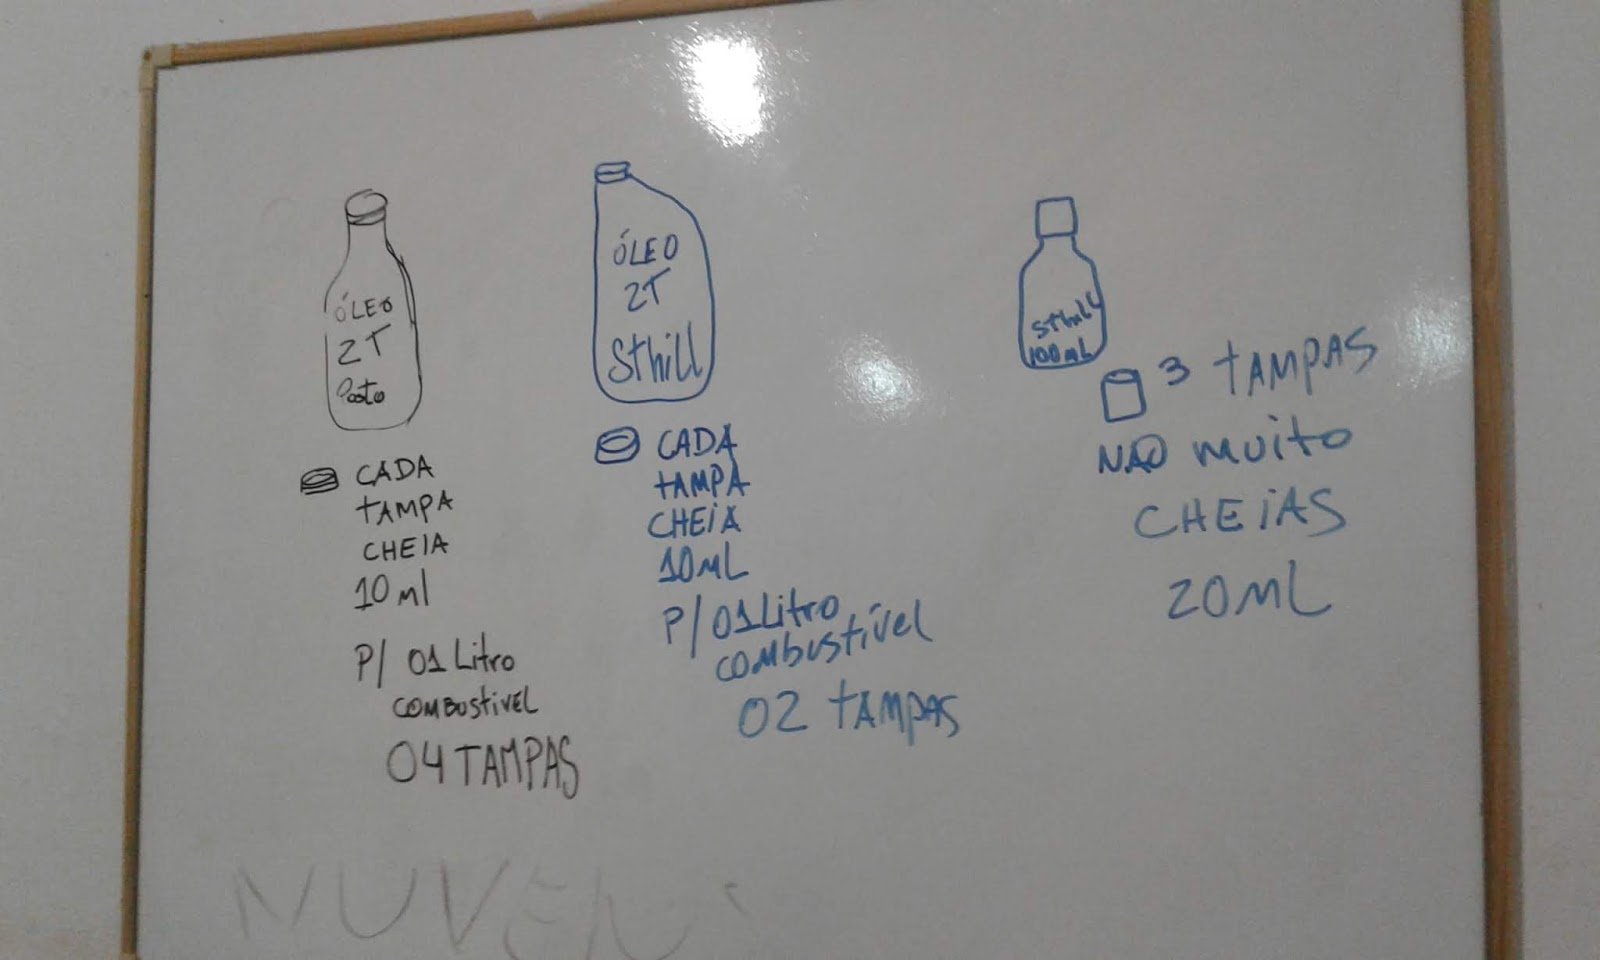 ÓLEO
2T
Posto
CADA
TAMPA
CHEIA
10 ml
P/ 01 Litro
COMBUSTIVEL
04 TAMPAS
ÓLEO
2T
Sthill
CADA
TAMPA
CHEIA
10ML
P/ 01 Litro
combustível
02 TAMPAS
Sthill
100ML
3 TAMPAS
NÃO muito
CHEIAS
20ML